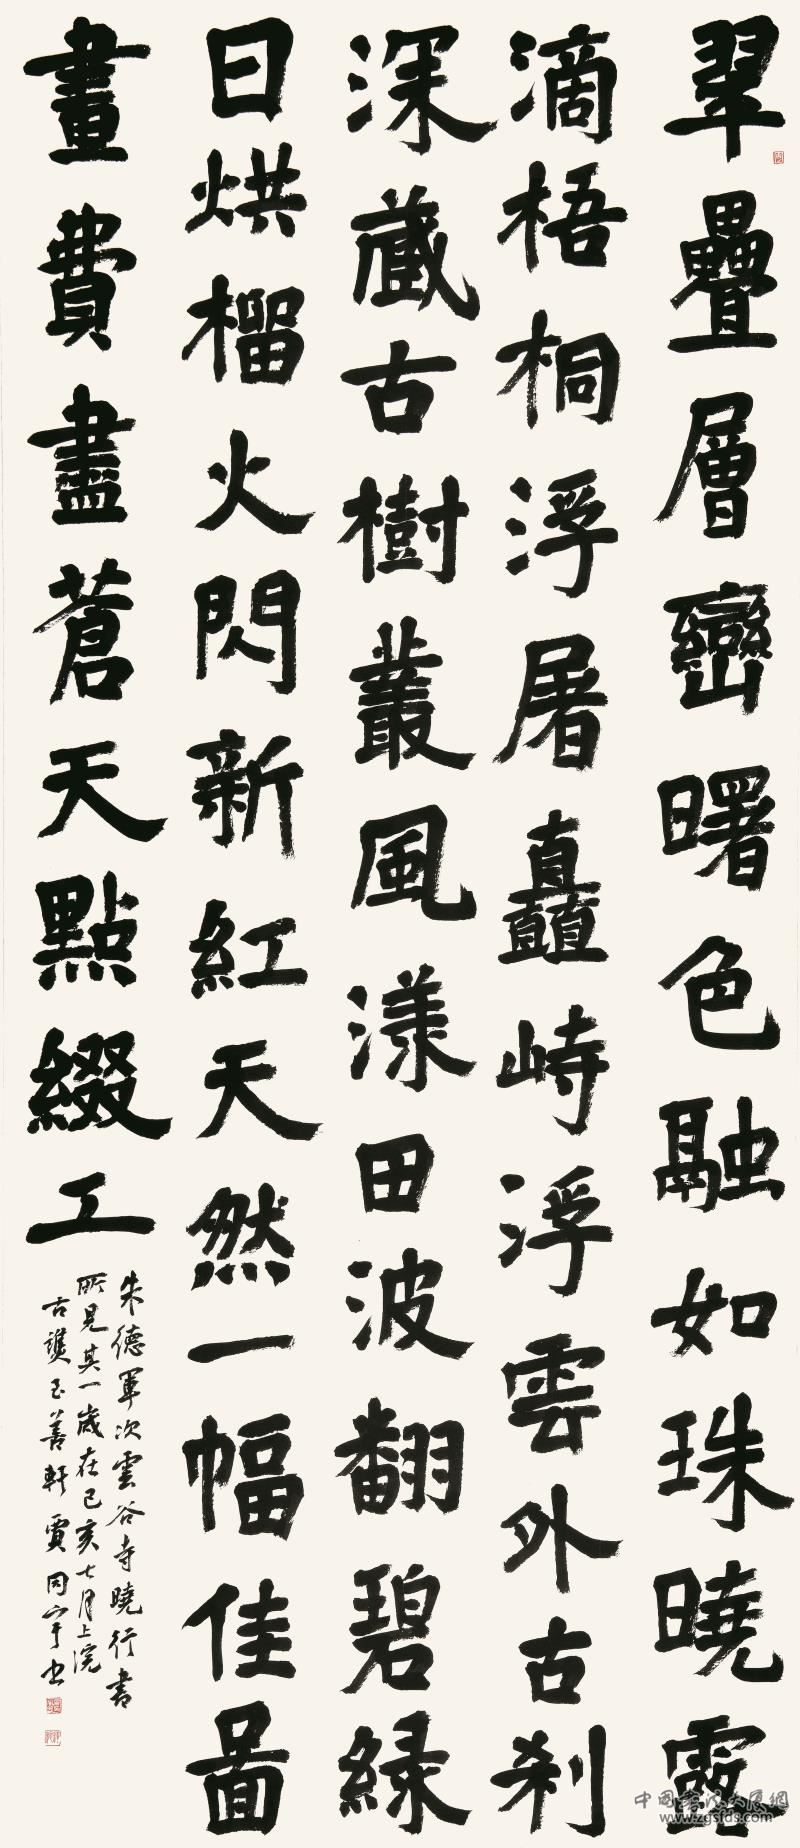 翠疊層巒曙色融如珠曉露
滴梧桐浮屠矗峙浮雲外古刹
深藏古樹叢風漾田波翻碧緑
日烘榴火閃新紅天然一幅佳圖
畫費盡蒼天點綴工
朱德軍次雲谷寺曉行書
所見其一歲在己亥七月上浣
古譙善軒賈同宇书
www.zgsfds.com